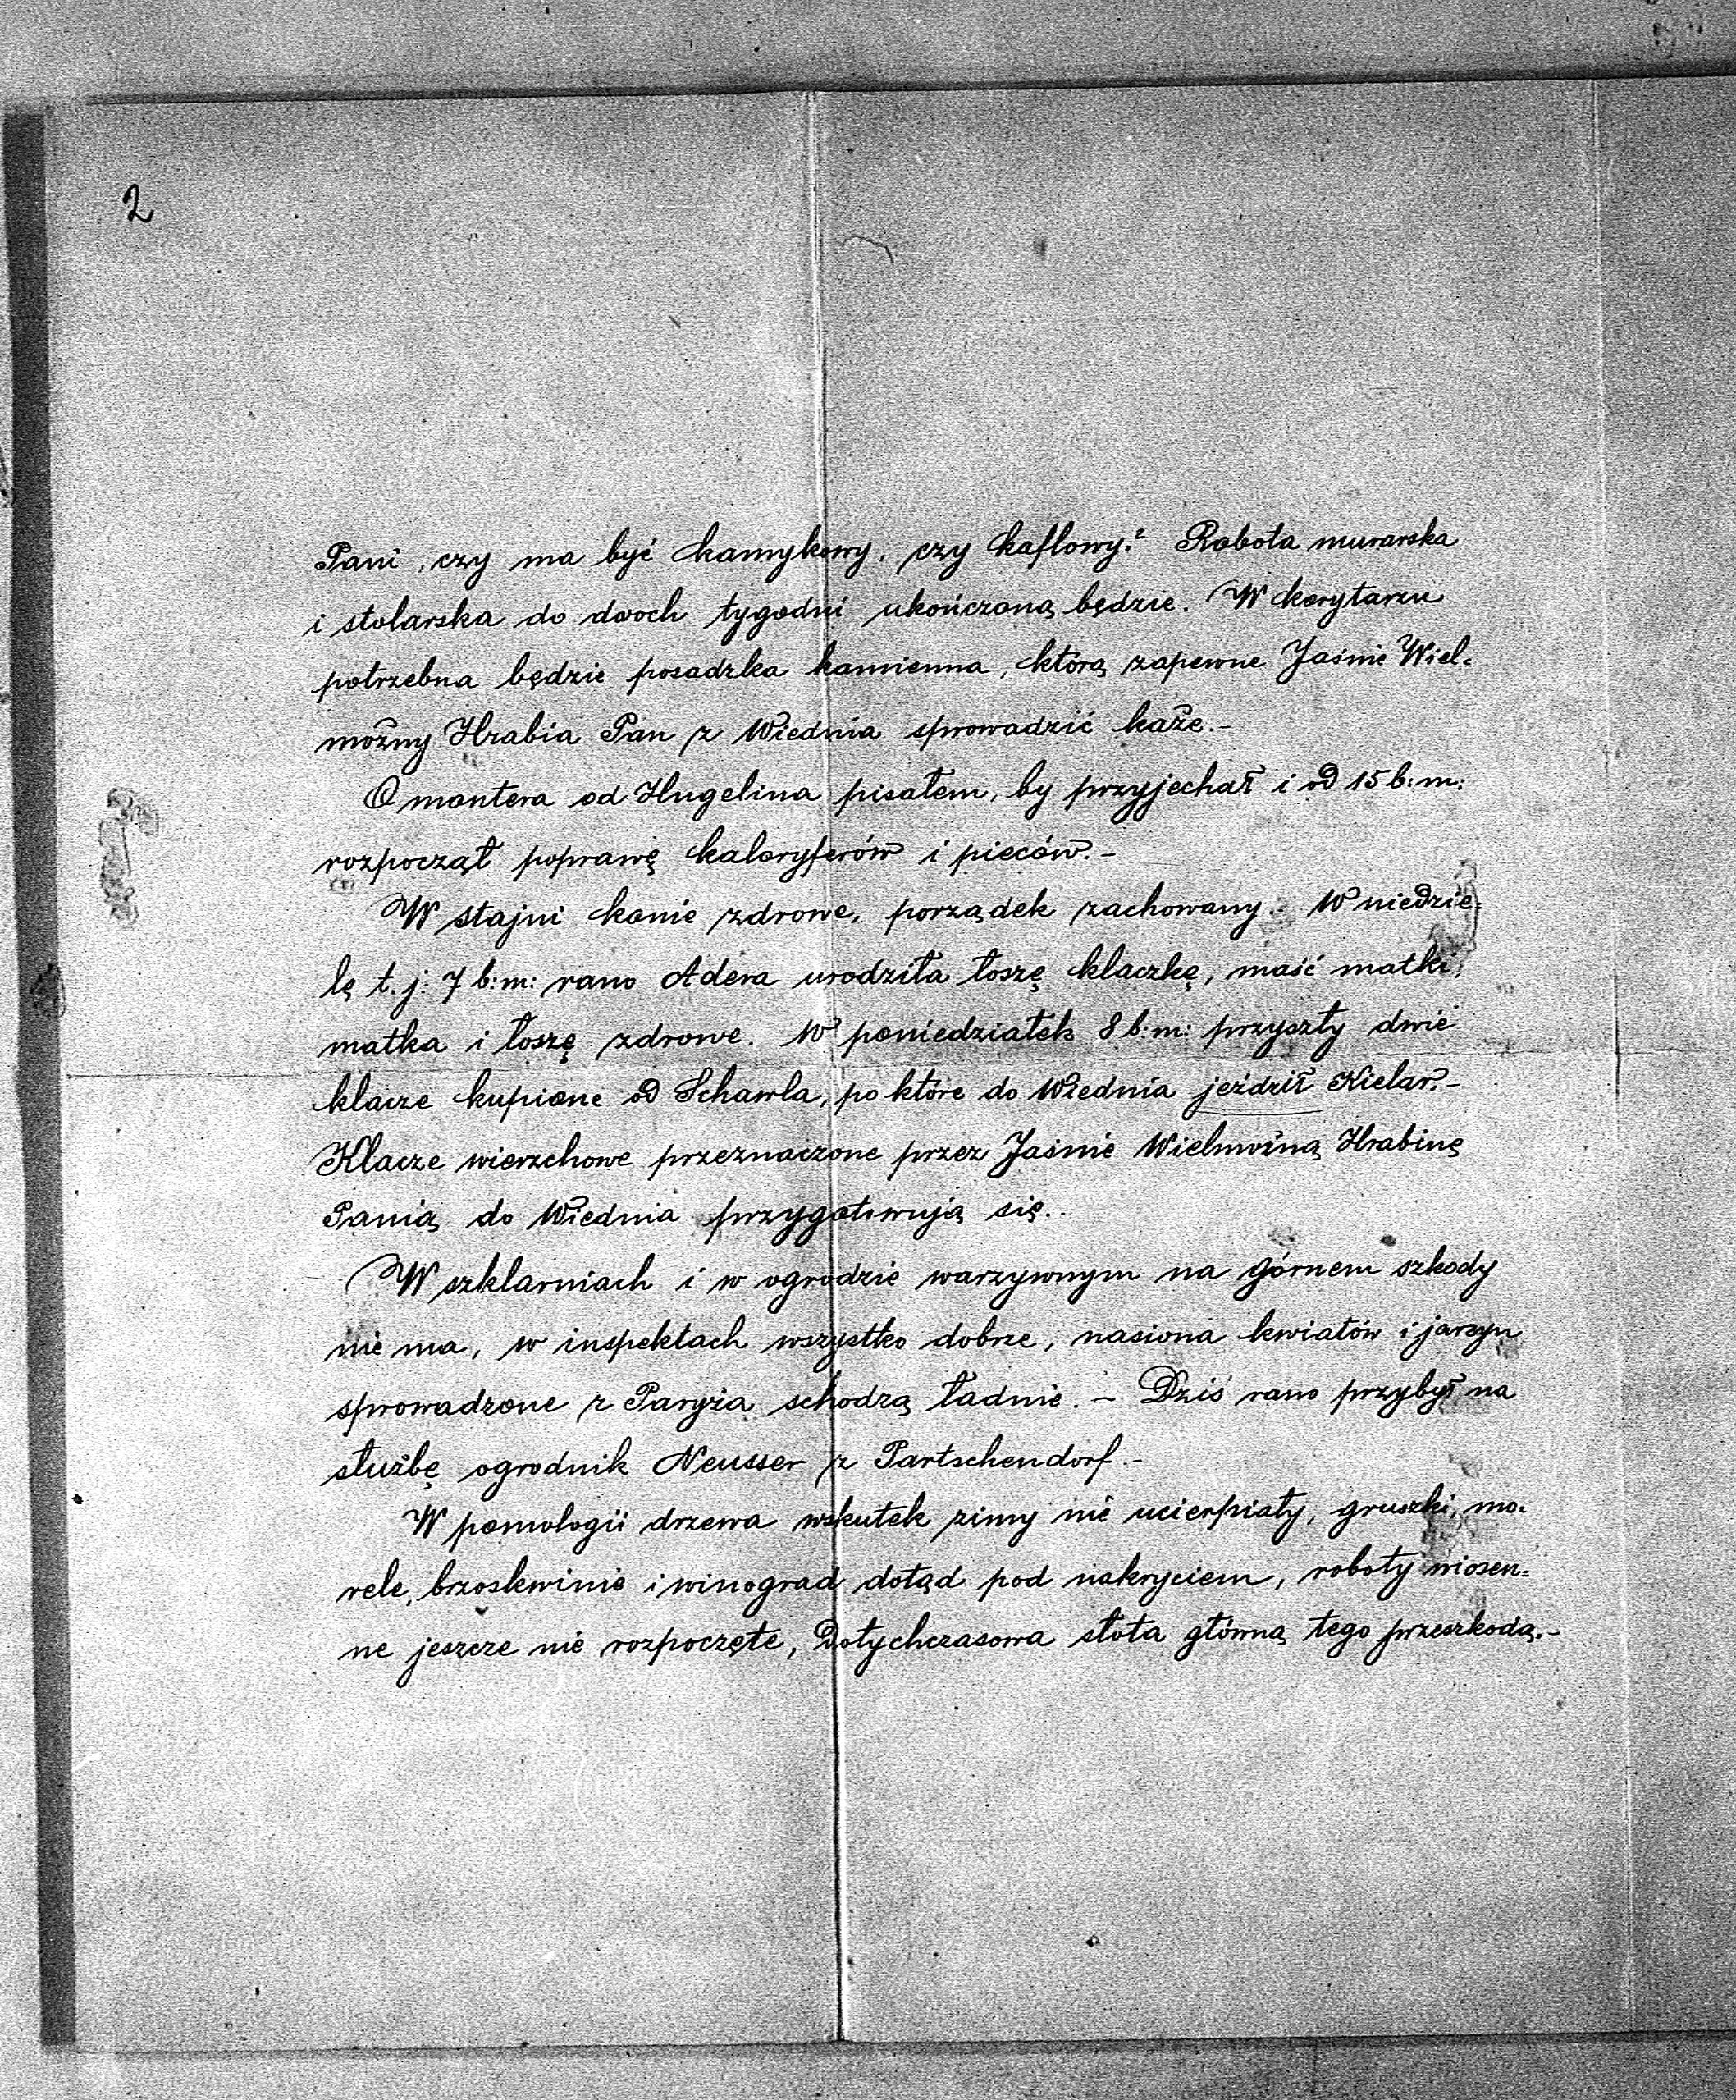 2
Pani, czy ma być kamykowy, czy kaflowy? Robota murarska
i stolarska do dwoch tygodni ukończoną będzie. W korytarzu
potrzebna będzie posadzka kamienna, którą zapewne Jaśnie Wiel-
możny Hrabia Pan z Wiednia sprowadzić każe.-
O montera od Hugelina pisałem, by przyjechał i od 15 b:m:
rozpoczął poprawę kaloryferów i pieców.-
W stajni konie zdrowe, porządek zachowany. W niedzie-
lę t.j: 7 b:m: rano Adera urodziła łoszę klaczkę, maść matki,
matka i łoszę zdrowe. W poniedziałek 8 b:m: przyszły dwie
klacze kupione od Schawla, po które do Wiednia jeździł Kielar.-
Klacze wierzchowe przeznaczone przez Jaśnie Wielmożną Hrabinę
Panią do Wiednia przygotowują się..
W szklarniach i w ogrodzie warzywnym na górnem szkody
nie ma, w inspektach wszystko dobrze, nasiona kwiatów i jarzyn
sprowadzone z Paryża schodzą ładnie. - Dziś rano przybył na
służbę ogrodnik Neusser z Partschendorf.-
W pomologii drzewa wskutek zimy nie ucierpiały, gruszki, mo-
rele, brzoskwinie i winograd dotąd pod nakryciem, roboty wiosen-
ne jeszcze nie rozpoczęte, Dotychczasowa słota główną tego przeszkodą.-